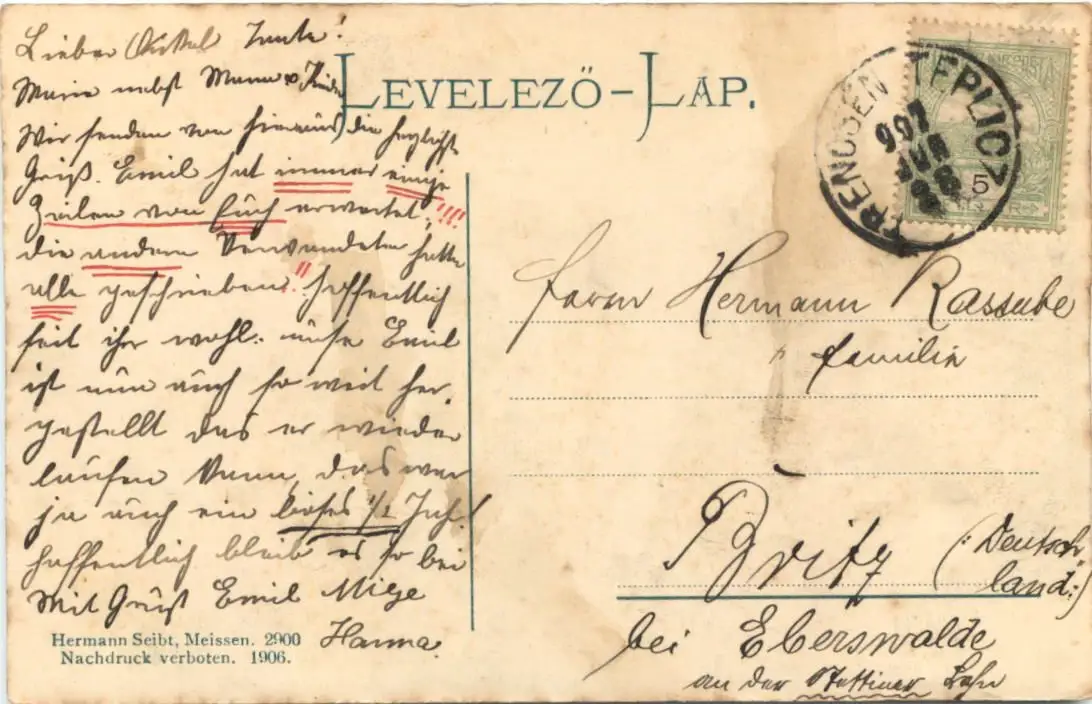 Lieber Onkel Tante!
Marie nebst Mann u Kinder
Wir senden von hieraus die herzlichst
Grüß. Emil hat immer einige
Zeilen von Euch erwartet, !!!
die andern Verwandten hatte
alle geschrieben!! hoffentlich
seit ihr wohl. unser Emil
ist nun auch so weit her,
gestellt das er wieder
laufen kann, das war
ja auch ein böses 1/2 Jahr!
hoffentlich bleib es so bei
Mit Grüß Emil
Hanna.
Hermann Seibt, Meissen. 2900
Nachdruck verboten. 1906.
LEVELEZŐ-LAP.
TRENCSÉN TEPLICZ
5
Herrn Hermann Kassube
Familie
Britz (:Deutsch,
land:)
bei Eberswalde
an der Stettiner Bahn